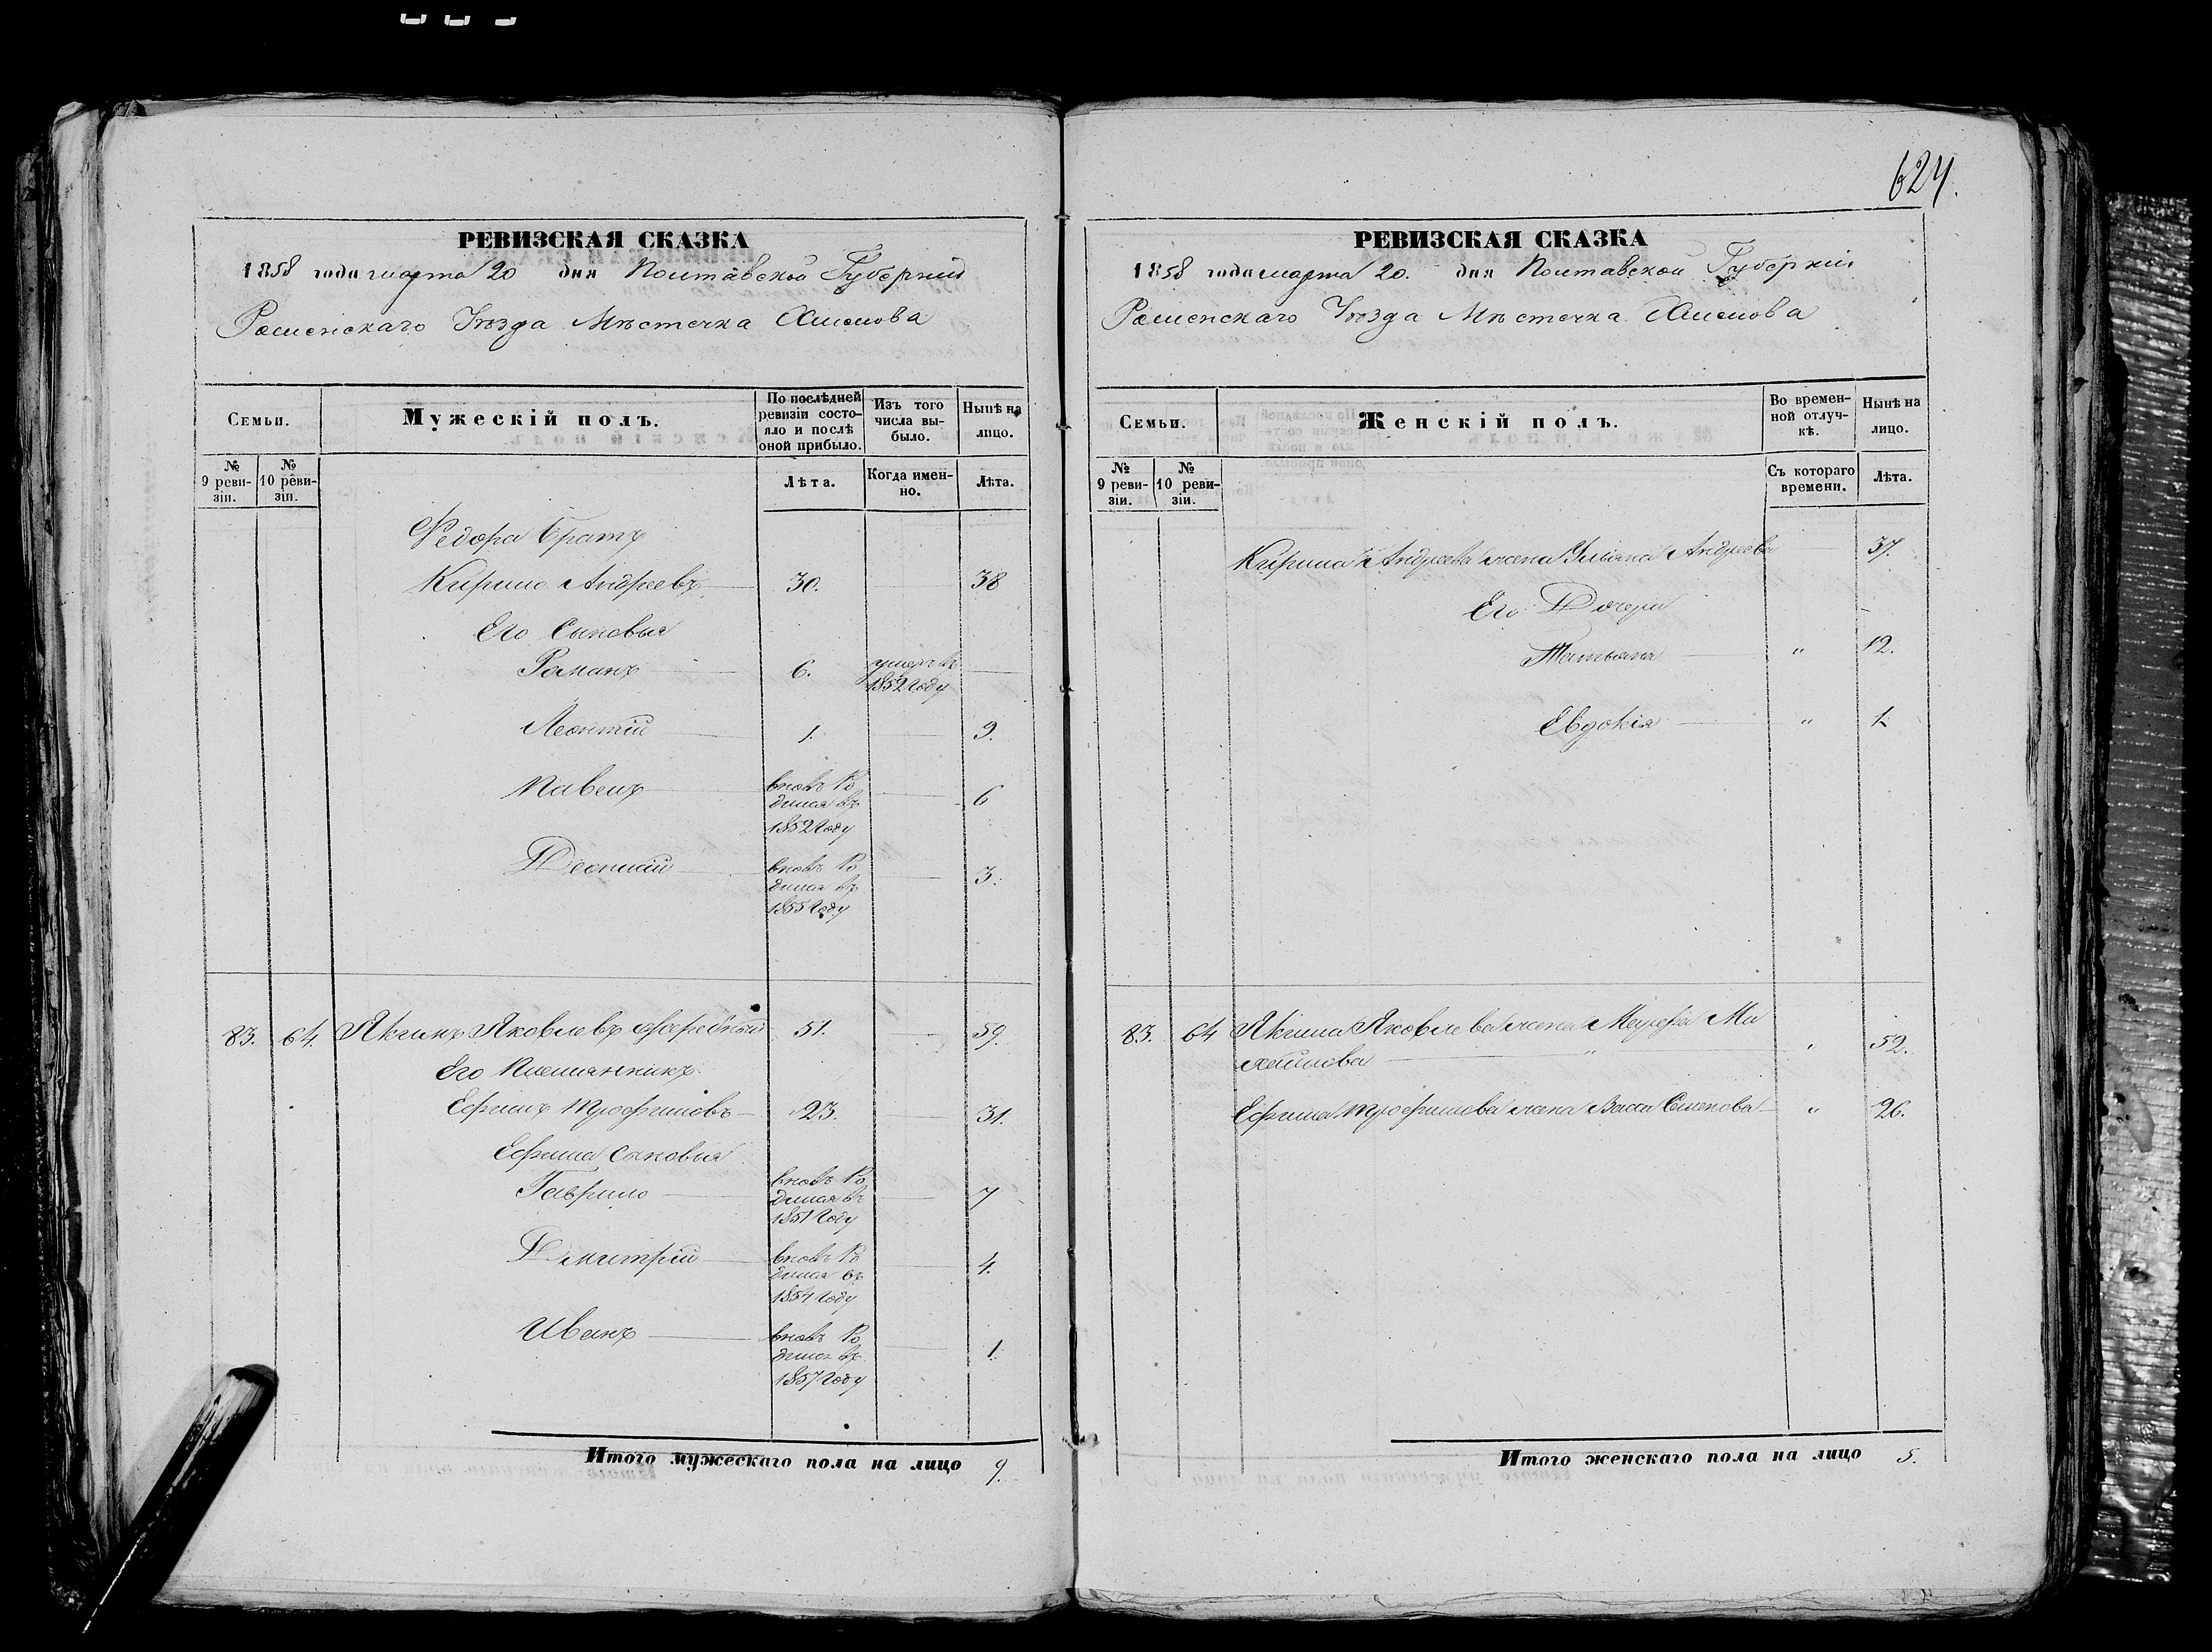 624.
РЕВИЗСКАЯ СКАЗКА
1858 года марта 20 дня Полтавской Губернии
Роменскаго Уѣзда Мѣстечка Смелова
Семьи.
Мужескій полъ.
По послѣдней ревизіи состояло и послѣ оной прибыло.
Изъ того числа выбыло.
Нынѣ на лицо.
№ 9 ревизіи.
№ 10 ревизіи.
Лѣта.
Когда именно.
Лѣта.
Федора братъ
Кирило Андреевъ 30. 38
Его Сыновья
Романъ 6. умеръ въ 1852 году
Леонтій 1. 9.
Павелъ вновь родился въ 1852 году 6
вновь родился въ 1855 году 3.
83. 64. Якимъ Яковлевъ 51. 59.
Его Племянникъ
Ефимъ Трофимовъ 23. 31.
Ефима сыновья
Гаврило вновь родился въ 1851 году 7
Дмитрій вновь родился въ 1854 году 4.
Иванъ вновь родился въ 1857 году 1.
Итого мужескаго пола на лицо 9.
РЕВИЗСКАЯ СКАЗКА
1858 года марта 20. дня Полтавской Губерніи
Роменскаго Уѣзда Мѣстечка Смелова
Семьи.
Женскій полъ.
Во временной отлучкѣ.
Нынѣ на лицо.
№ 9 ревизіи.
№ 10 ревизіи.
Съ котораго времени.
Лѣта.
Кирила Андреева жена Ульяна Андреева 37.
Его Дочери
Татьяна " 12.
Евдокія " 1.
83. 64 Якима Яковлева жена Ма
хайлова " 52.
Ефима Трофимова жена Васса Семенова " 26.
Итого женскаго пола на лицо 5.